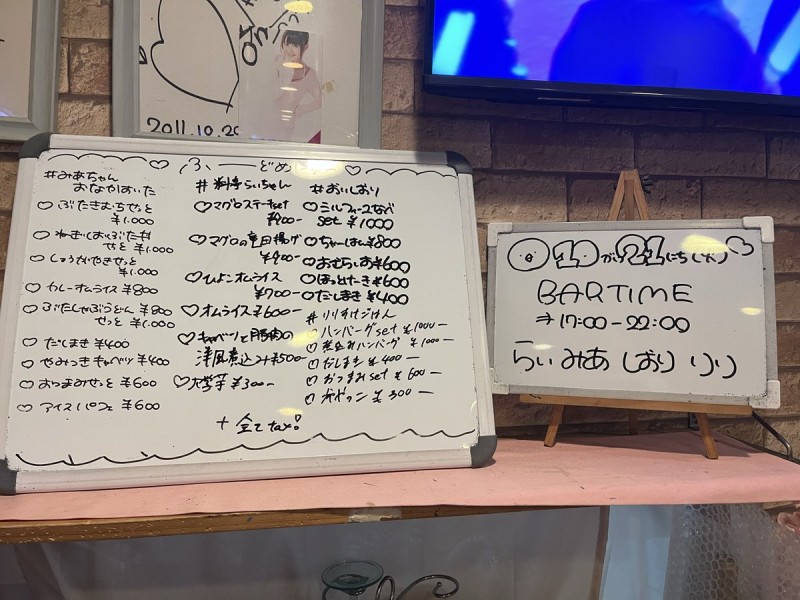 2011.10.29
ふーどめ
#みあちゃん
おなかすいた
♡ ぶたきむちせっと
¥1.000
♡ ねぎしおぶた丼
せっと ¥1.000
♡ しょうがやきせっと
¥1.000
♡ カレーオムライス ¥800
♡ ぶたしゃぶうどん ¥800
せっと ¥1.000
♡ だしまき ¥400
♡ やみつきキャベツ ¥400
♡ おつまみせっと ¥600
♡ アイスパフェ ¥600
#料亭らいちゃん
♡ マグロステーキset
¥900-
♡ マグロの竜田揚げ
¥900-
♡ ひよこオムライス
¥700-
♡ オムライス ¥600-
♡ キャベツと豚肉の
洋風煮込み ¥500-
♡ 大学芋 ¥300-
#おいしおり
♡ ミルフィーユなべ
set ¥1000
♡ ちゃーはん ¥800
♡ おさらしあ ¥600
♡ ほっとけーき ¥600
♡ だしまき ¥400
#りりすけごはん
♡ ハンバーグset ¥1000-
♡ 煮込みハンバーグ ¥1000-
♡ だしまき ¥400-
♡ おつまみset ¥600-
♡ ¥300-
+ 全て tax!
10がつ21にち(火)♡
BARTIME
→ 17:00-22:00
らい みあ しおり りり